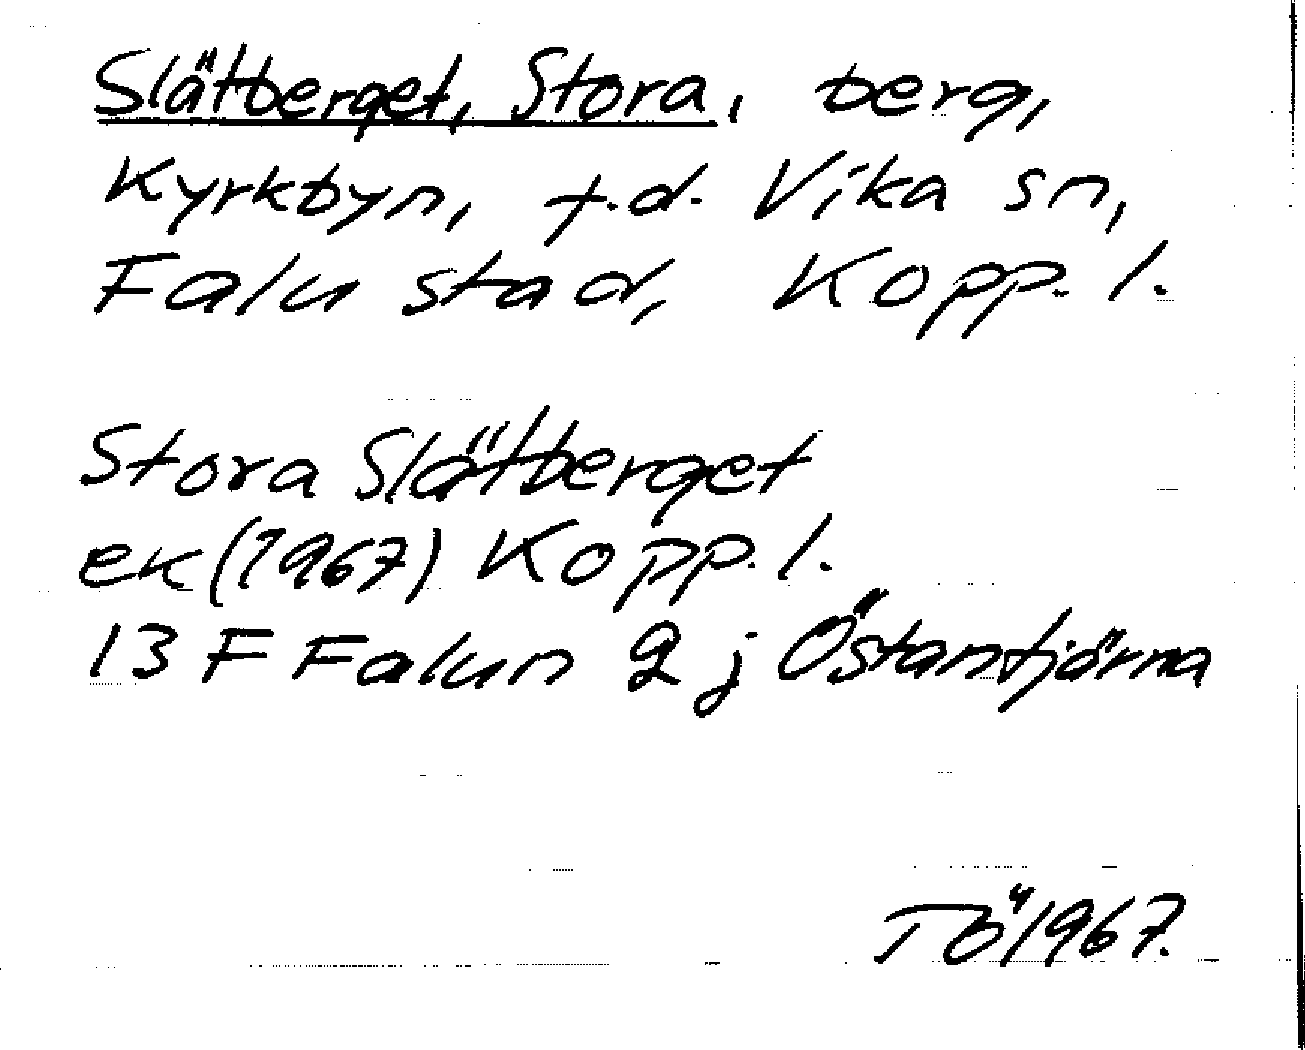 Slätberget, Stora, berg,
Kyrkbyn, f.d. Vika sn,
Falu stad, Kopp. l.
Stora Slätberget
ek (1967) Kopp. l.
13 F Falun 9 j Östantjärna
TÖ 1967.